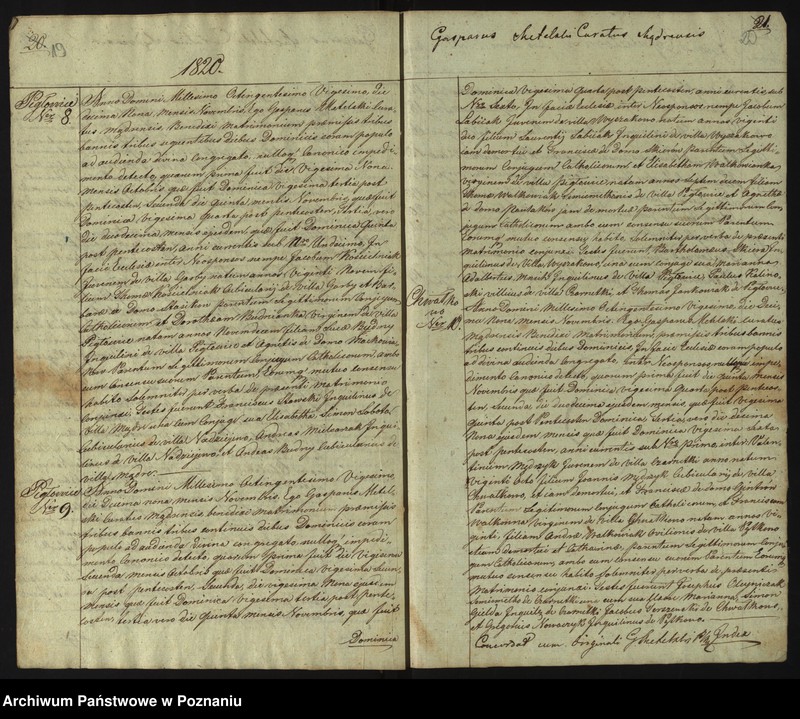 20.
1820.
Pigłowice
Nro 8.
Anno Domini Millesimo Octingentesimo Vigesimo, die
decima Nona Mensis Novembris, Ego Gasparus Metelski Cura-
tus Mądrensis Benedixi Matrimonium præmissis tribus
bannis tribus sequentibus diebus Dominicis coram populo
ad audienda divina Congregato, nulloq. Canonico impedi-
mento detecto, quorum prima fuit die Vigesima Nona
Mensis Octobris quæ fuit Dominica Vigesima tertia post
pentecosten, Secunda die quinta mensis Novembris, quæ fuit
Dominica Vigesima quarta post pentecosten, tertia vero
die duodecima mensis ejusdem, quæ fuit Dominica Quinta
post pentecosten, anni currentis sub Nro Undecimo, In
facie Ecclesiæ inter Neosponsos nempe Jacobum
Juvenem de villa natum annos Viginti Novem fi-
lium Thomæ Cubicularij de Villa et Bar-
bara de Domo parentum Legittimorum Conjugum
Catholicorum et Dorotheam Budnianka Virginem de Villa
Pigłowice natam annos Novemdecim filiam Lucæ Budny
Inquilini de villa Pigłowice et Agnetis de Domo
Parentum Legittimorum Conjugum Catholicorum, ambo
cum consensu suorum Parentum, Eorumq. mutuo consensu
habito Solemniter per verba de præsenti Matrimonio
conjunxi. Testes fuerunt Franciscus Inquilinus de
Villa Mądre una cum Conjuge sua Elisabetha, Simon Sobota
Cubicularius de villa Nadziejewo, Andreas Inqui-
linus de Villa Nadziejewo, et Andreas Budny Cubicularius de
villa Mądre.
Pigłowice
Nro 9.
Anno Domini Millesimo Octingentesimo Vigesimo
die Decima nona mensis Novembris, Ego Gasparus Metel-
ski Curatus Mądrensis benedixi matrimonium præmissis
tribus bannis tribus continuis diebus Dominicis coram
populo ad audienda divina congregato nulloq. impedi-
mento Canonico detecto, quorum prima fuit die Vigesima
Secunda mensis Octobris quæ fuit Dominica Vigesima Secun-
da post pentecosten, Secunda die vigesima Nona ejusdem
Mensis quæ fuit Dominica Vigesima tertia post pente-
costen, tertia vero die Quinta mensis Novembris, quæ fuit
Dominica
21.
Gasparus Metelski Curatus Mądrensis
Dominica Vigesima Quarta post pentecosten, anni currentis sub
Nro Sexto, In facie Ecclesiæ inter Neosponsos nempe Jacobum
Sobiak Juvenem de villa Wyszakowo natum annos Viginti
filium Laurentij Sobiak Inquilini de villa Wyszakowo
iam demortui et Francisca de domo parentum Legitti-
morum Conjugum Catholicorum et Elisabetham Walkowianka
virginem de villa Pigłowice natam annos Septemdecim filiam
Thomæ Walkowiak de Villa Pigłowice et Agnetha
de domo jam demortua parentum Legittimorum Con-
jugum Catholicorum ambo cum consensu suorum Parentum
Eorumq. mutuo consensu habito Solemniter per verba de præsenti
matrimonio conjunxi. Testes fuerunt Bartholomeus In-
quilinus de Villa Wyszakowo, una cum conjuge sua Marianna
Inquilinus de Villa Pigłowice, Paulus
villicus de villa Czarnotki et Thomas Jankowiak de Pigłowice.
Chwałko-
wo
Nro 10.
Anno Domini Millesimo Octingentesimo Vigesimo die Deci-
ma Nona Mensis Novembris. Ego Gasparus Metelski Curatus
Mądrensis Benedixi Matrimonium præmissis tribus bannis
tribus continuis diebus Dominicis In facie Ecclesiæ coram populo
ad divina audienda Congregato, Inter Neosponsos nulloque impe-
dimento Canonico detecto, quorum prima fuit die Quinta Mensis
Novembris quæ fuit Dominica Vigesima Quarta post penteco-
sten, Secunda die duodecima ejusdem mensis, quæ fuit Vigesima
Quinta post Pentecosten Dominica, tertia vero die decima
Nona ejusdem mensis quæ fuit Dominica Vigesima Sexta
post pentecosten, anni currentis sub Nro Primo inter Valen-
tinum Juvenem de Villa Czarnotki anno natum
Viginti Octo filium Joannis Cubicularij de villa
Chwałkowo, et iam demortui, et Francisca de domo
Parentum Legitimorum Conjugum Catholicorum, et Franciscam
Walkowna Virginem de Villa Chwałkowo natam annos Vi-
ginti, filiam Andreæ Walkowiak Ovilionis de villa Pętkowo
etiam demortui et Catharina, parentum Legittimorum Conju-
gum Catholicorum, ambo cum consensu suorum Parentum Eorumq.
mutuo consensu habito Solemniter per verba de præsenti
Matrimonio conjunxi. Testes fuerunt Josephus
de Czarnotki una cum sua Marianna, Simon
Inquil. de Czarnotki Jacobus de Chwałkowo,
et Gregorius Nowaczyk Inquilinus de Pętkowo.
Concordat cum Originali GMetelski
Archiwum Państwowe w Poznaniu